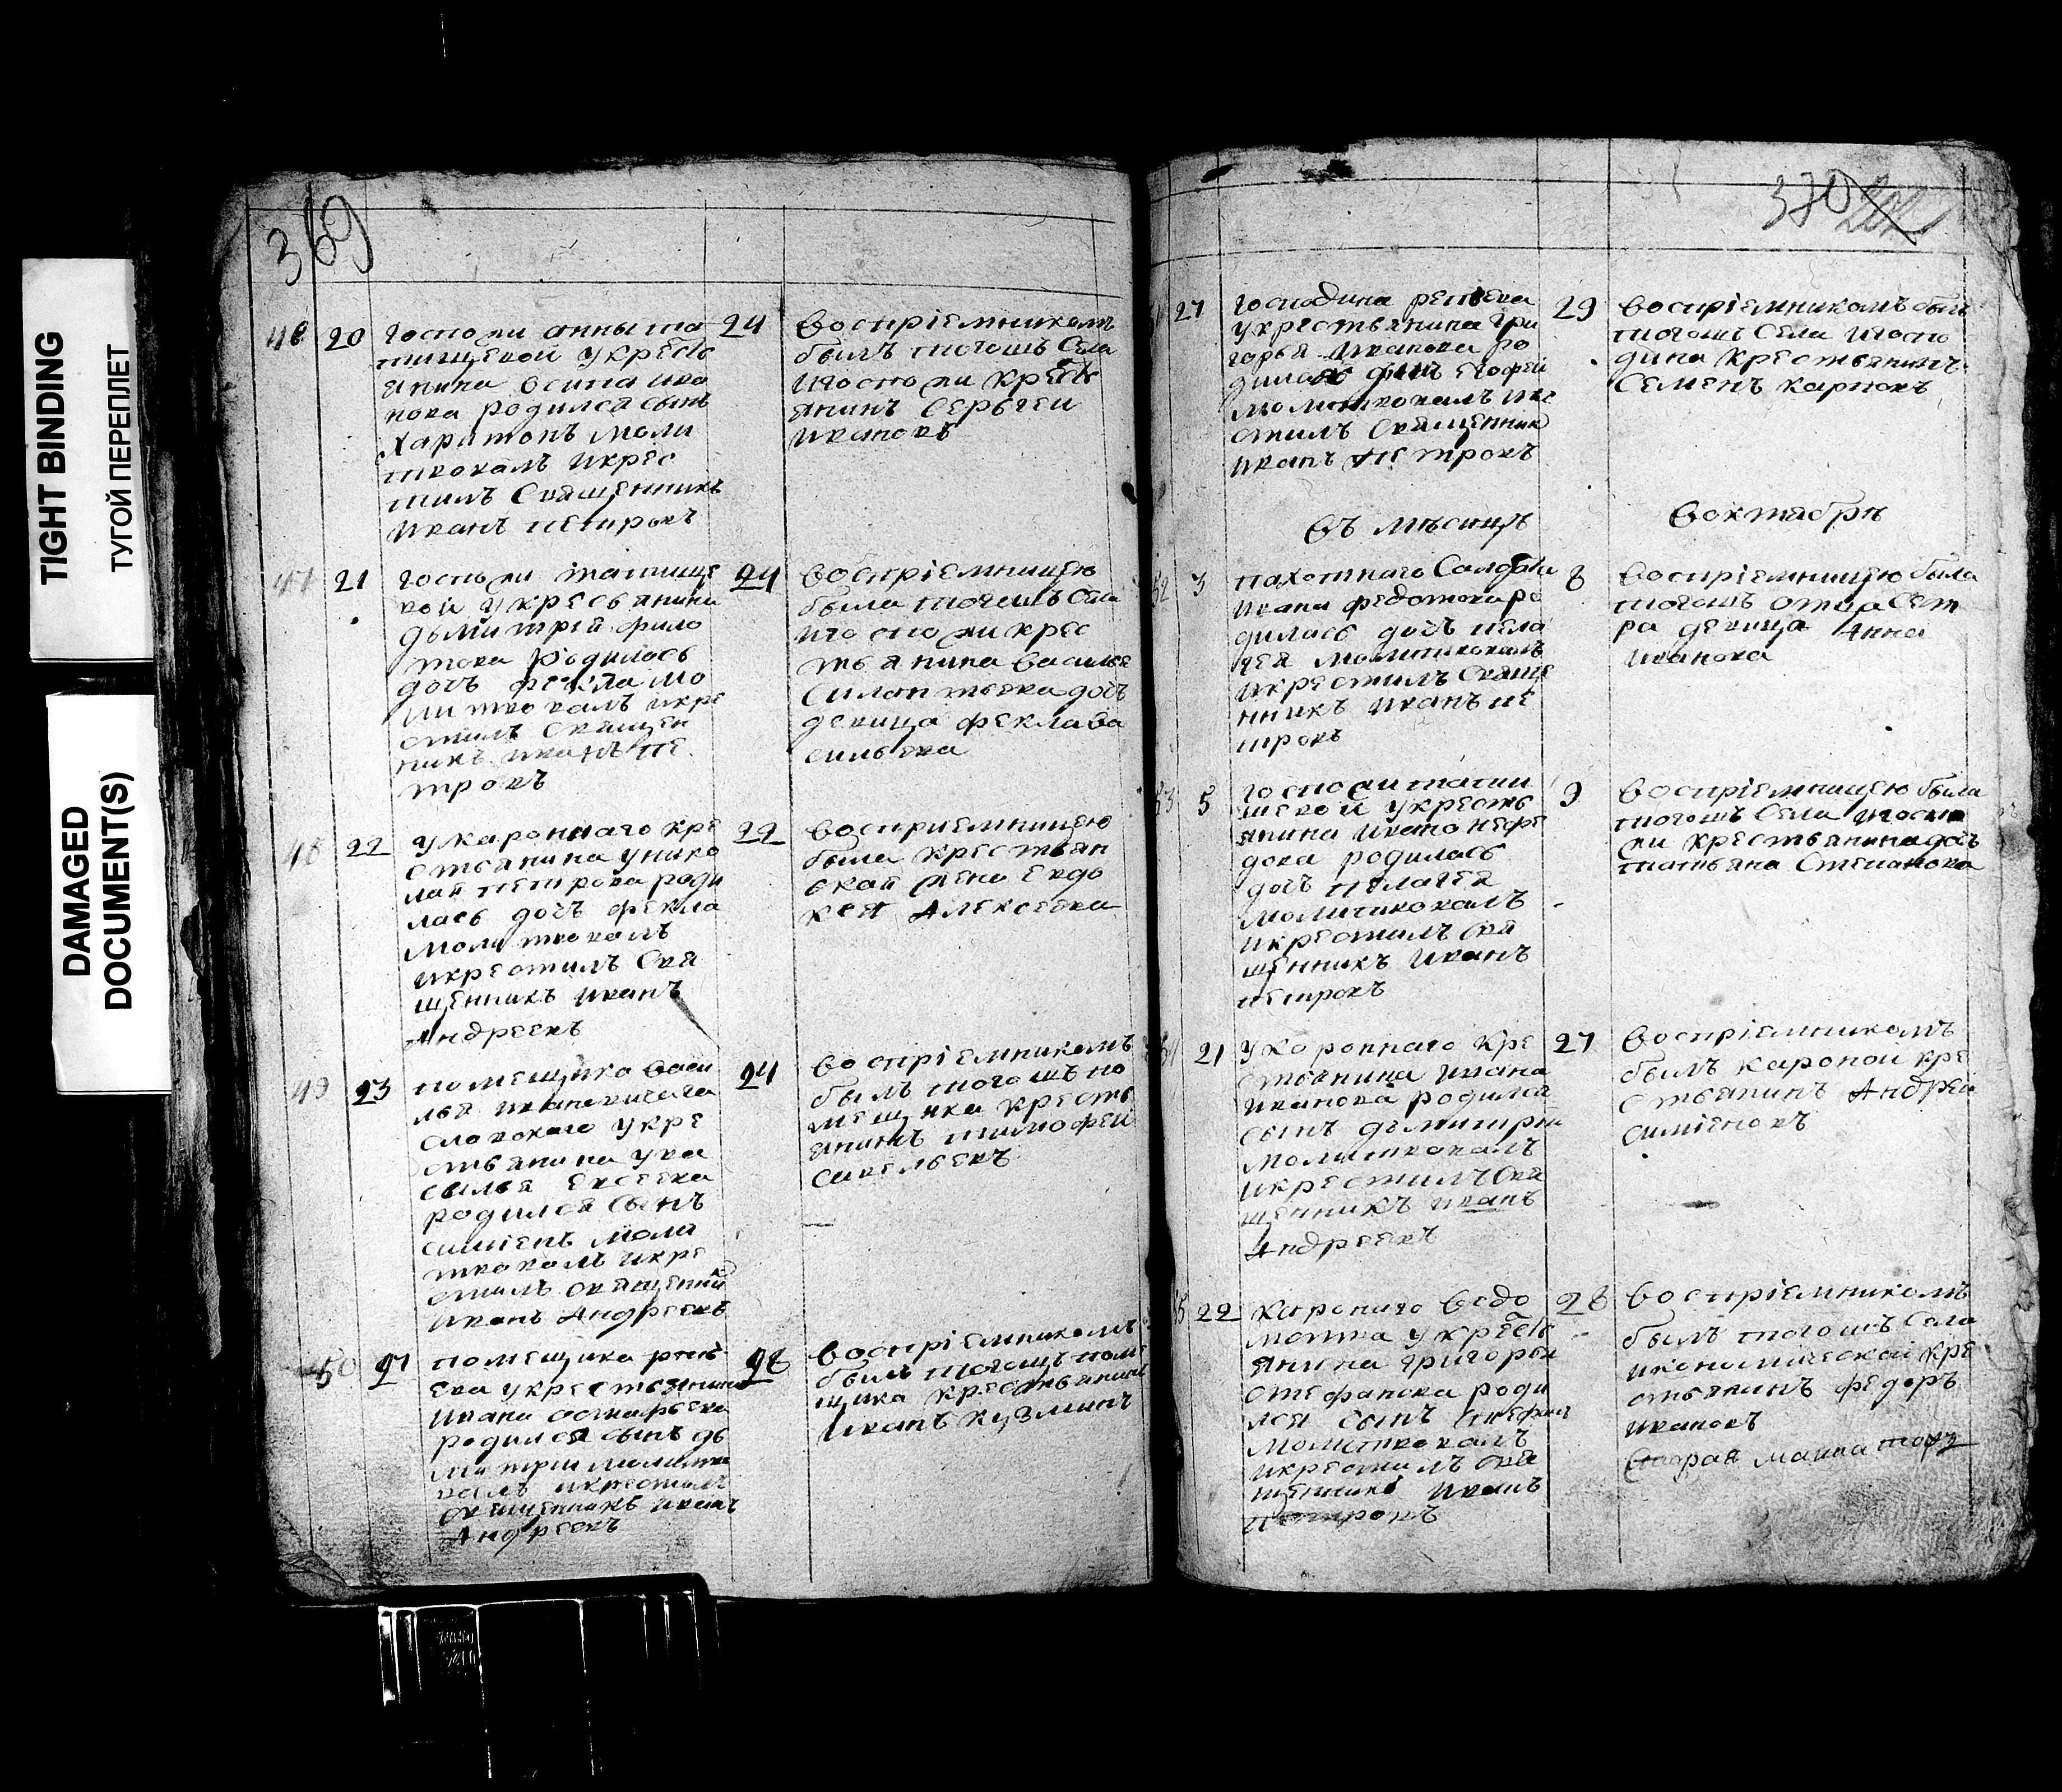 TIGHT BINDING
ТУГОЙ ПЕРЕПЛЕТ
DAMAGED
DOCUMENT(S)
369
46 20 госпожи анны та
тищевой укресть
янина осипа ива
нова родился сынъ
Харитонъ моли
твовалъ икрес
тилъ Священникъ
Иванъ петровъ
24 Воспріемникомъ
былъ тогошъ Села
Игоспожи Кресть
янинъ Серьгеи
Ивановъ
47 21 госпожи татище
вой укресьянина
дьмитрея фило
това Родилась
дочь фекла мо
литвовалъ икре
стилъ Священ
никъ иванъ пе
тровъ
24 Воспріемницею
была тогошъ Села
Игоспожи крес
тьянина Василья
Силантьева дочь
девица фекла ва
сильева
48 22 укаронного кре
стьянина унико
лая петрова роди
лась дочь фекла
молитвовалъ
икрестилъ Свя
щенникъ Иванъ
Андреевъ
22 Восприемницею
была крестьян
ская жена Евдо
кея Алексеева
49 23 помещика васи
лья Ивановича
укре
стьянина ува
силья Евсеева
родился Сынъ
симиенъ моли
твовалъ икре
стилъ священник
Иванъ Андреевъ
24 Воспріемникомъ
былъ тогошъ по
мещика кресть
янинъ тимофеи
савельевъ
50 27 помещика
ева укрестьянина
Ивана остафьева
родился сынъ дь
митрии молитво
валъ икрестилъ
священникъ иванъ
Андреевъ
28 Воспріемникомъ
былъ тогошъ поме
щика крестьянинъ
Иванъ Кузминъ
370
27 господина
укрестьянина гри
горья Иванова ро
дился
молитвовалъ икре
стилъ Священник
Иванъ Петровъ
29 Воспріемникомъ былъ
тогошъ Села Игоспо
дина Крестьянинъ
Семенъ карповъ
Въ месицъ Воктябре
52 3 пахотнаго Солдата
Ивана федотова ро
дилась дочь пела
гея молитвовалъ
икрестилъ Свяще
нникъ Иванъ пе
тровъ
8 Воспріемницею была
тогошъ отца Сест
ра девица Анна
Иванова
53 5 госпожи тати
щевой укресть
янина Ивана нефе
дова родилась
дочь пелагея
молитвовалъ
икрестилъ Свя
щенникъ Иванъ
петровъ
9 Воспріемницею была
тогошъ Села Игоспо
жи Крестьянина дочь
татьяна Степанова
54 21 укоронного кре
стьянина Ивана
Иванова родился
сынъ дьмитрии
молитвовалъ
икрестилъ Свя
щенникъ Иванъ
Андреевъ
27 Воспріемникомъ
былъ каронои кре
стьянинъ Андреи
симиеновъ
55 22 каронного ведо
мства укресть
янина григорья
стефанова роди
лся сынъ стефанъ
молитвовалъ
икрестилъ Свя
щенникъ Иванъ
петровъ
28 Воспріемникомъ
былъ тогошъ Села
икономической кре
стьянинъ федоръ
Ивановъ